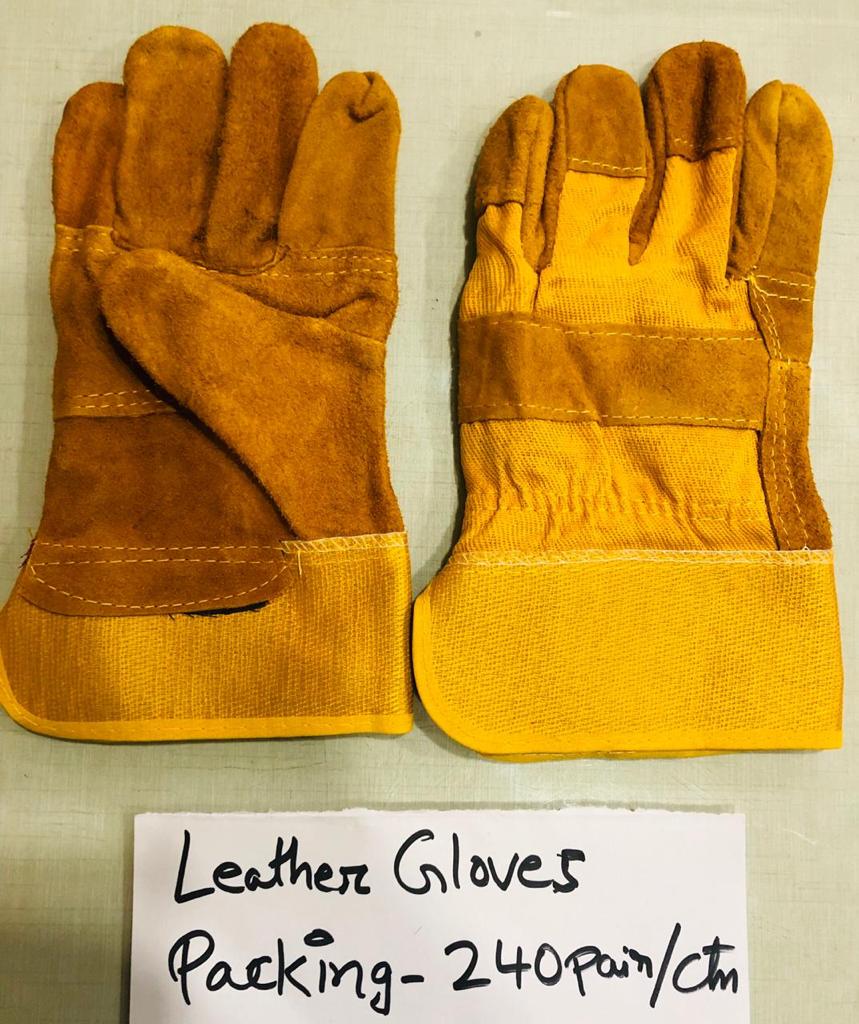 Leather Gloves
Packing - 240 pair/ctn